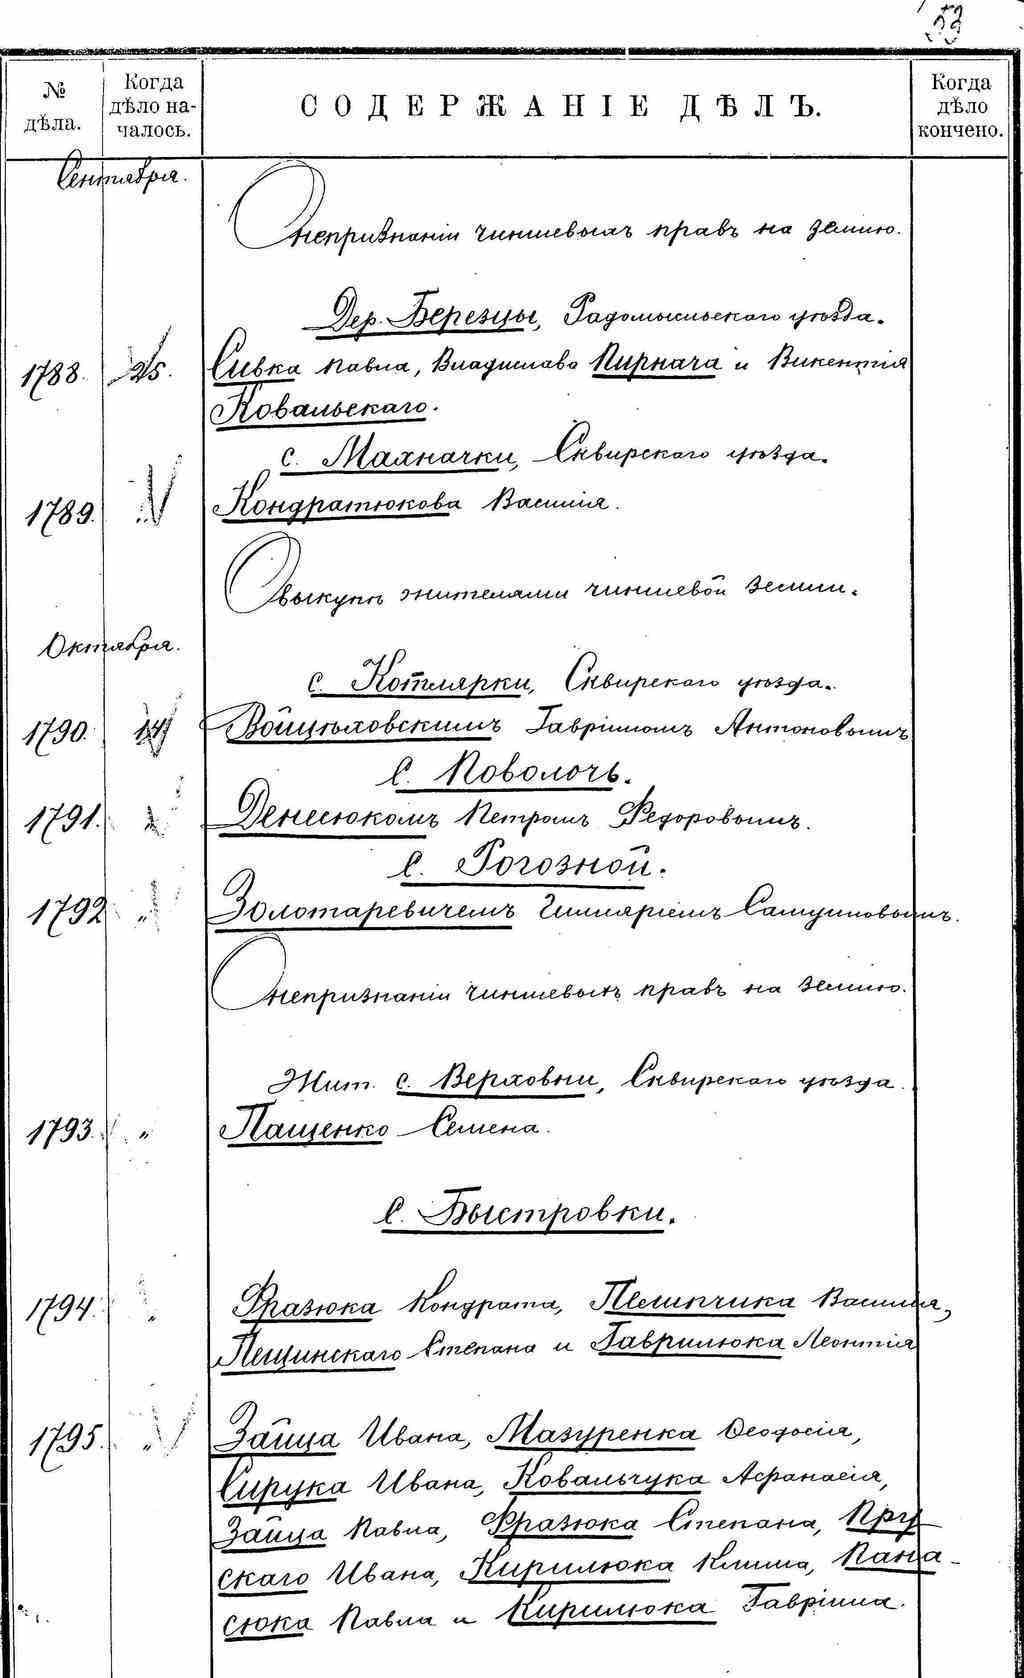 53
№ дѣла.
Когда дѣло на-чалось.
СОДЕРЖАНІЕ ДѢЛЪ.
Когда дѣло кончено.
Сентября.
О непризнаніи чиншевыхъ правъ на землю.
Дер. Березцы, Радомысльскаго уѣзда.
1788. 25. Сивка Павла, Владислава Пирнача и Викентія
Ковальскаго.
с. Махначки, Сквирскаго уѣзда.
1789. „ Кондратюкова Василія.
О выкупѣ жителями чиншевой земли.
Октября.
с. Котлярки, Сквирскаго уѣзда.
1790. 14 Войцѣховскимъ Гавріиломъ Антоновымъ
С. Поволочь.
1791. „ Денесюкомъ Петромъ Федоровымъ.
С. Рогозной.
1792 „ Золотаревичемъ Гиляріемъ Самуиловымъ.
О непризнаніи чиншевыхъ правъ на землю.
Жит. с. Верховни, Сквирскаго уѣзда.
1793. „ Пащенко Семена.
С. Быстровки.
1794. „ Фразюка Кондрата, Пелипчика Василія,
Пещинскаго Степана и Гаврилюка Леонтія
1795. „ Зайца Ивана, Мазуренка Ѳеодосія,
Сирука Ивана, Ковальчука Афанасія,
Зайца Павла, Фразюка Степана, Пру
скаго Ивана, Кирилюка Клима, Пана-
сюка Павла и Кирилюка Гавріила.